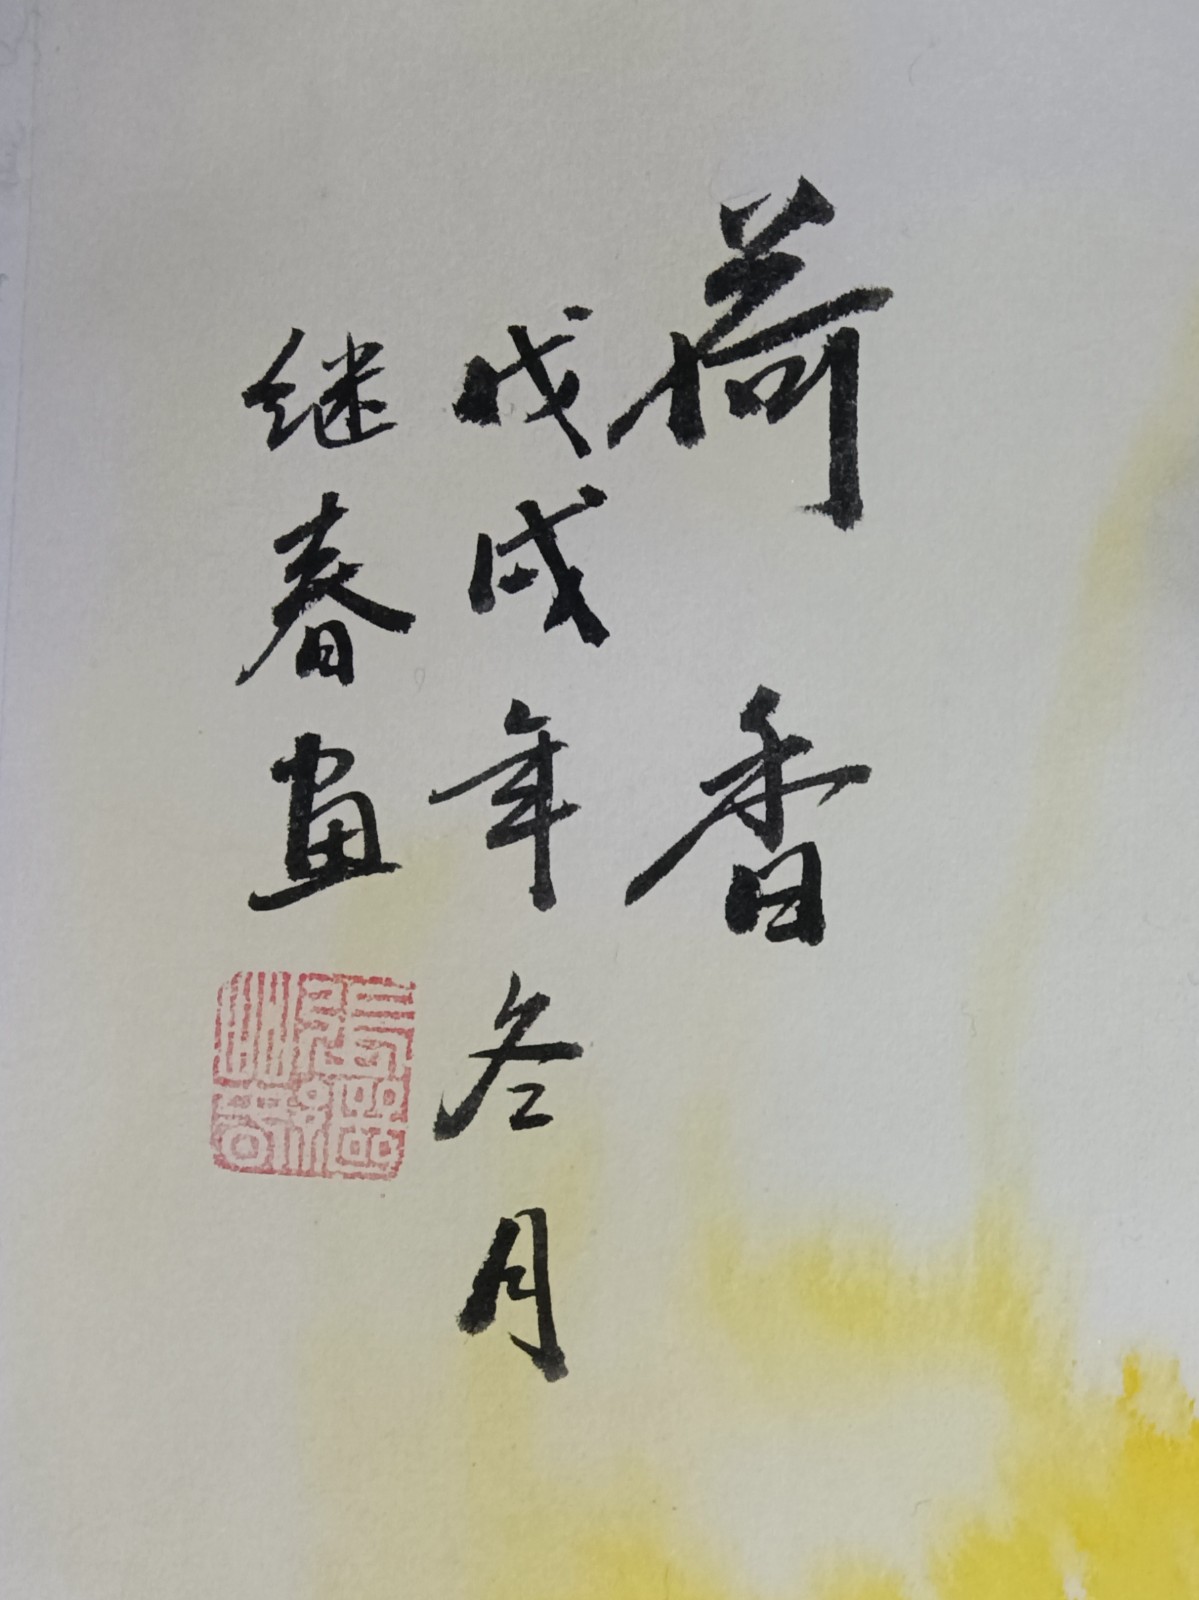 荷香
戊戌年冬月
继春画